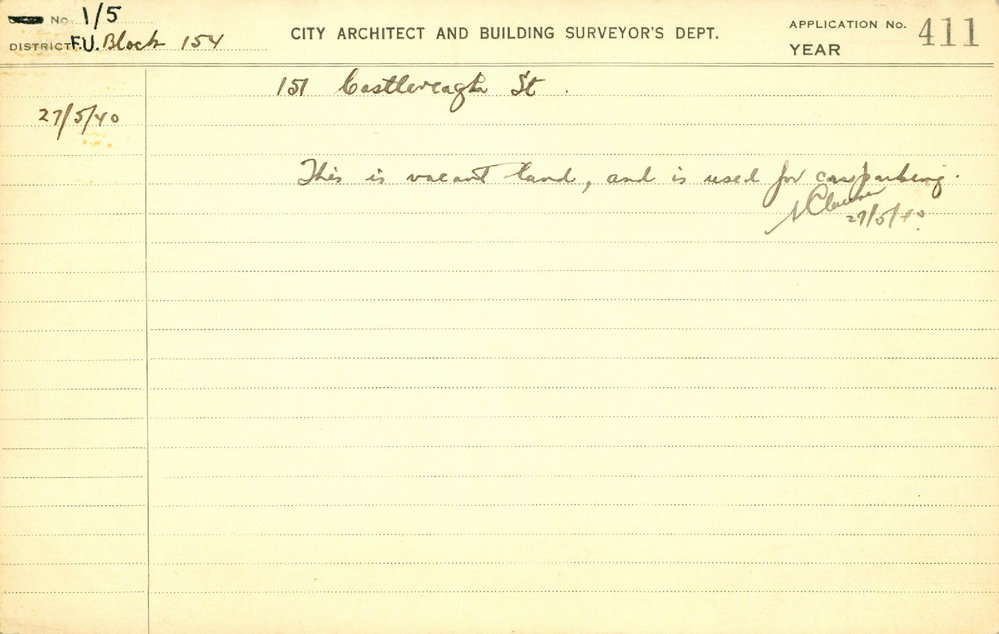 No 1/5
DISTRICT F.U. Block 154
CITY ARCHITECT AND BUILDING SURVEYOR'S DEPT.
APPLICATION No. 411
YEAR
151 Castlereagh St.
27/5/40
This is vacant land, and is used for carparking.
27/5/40.